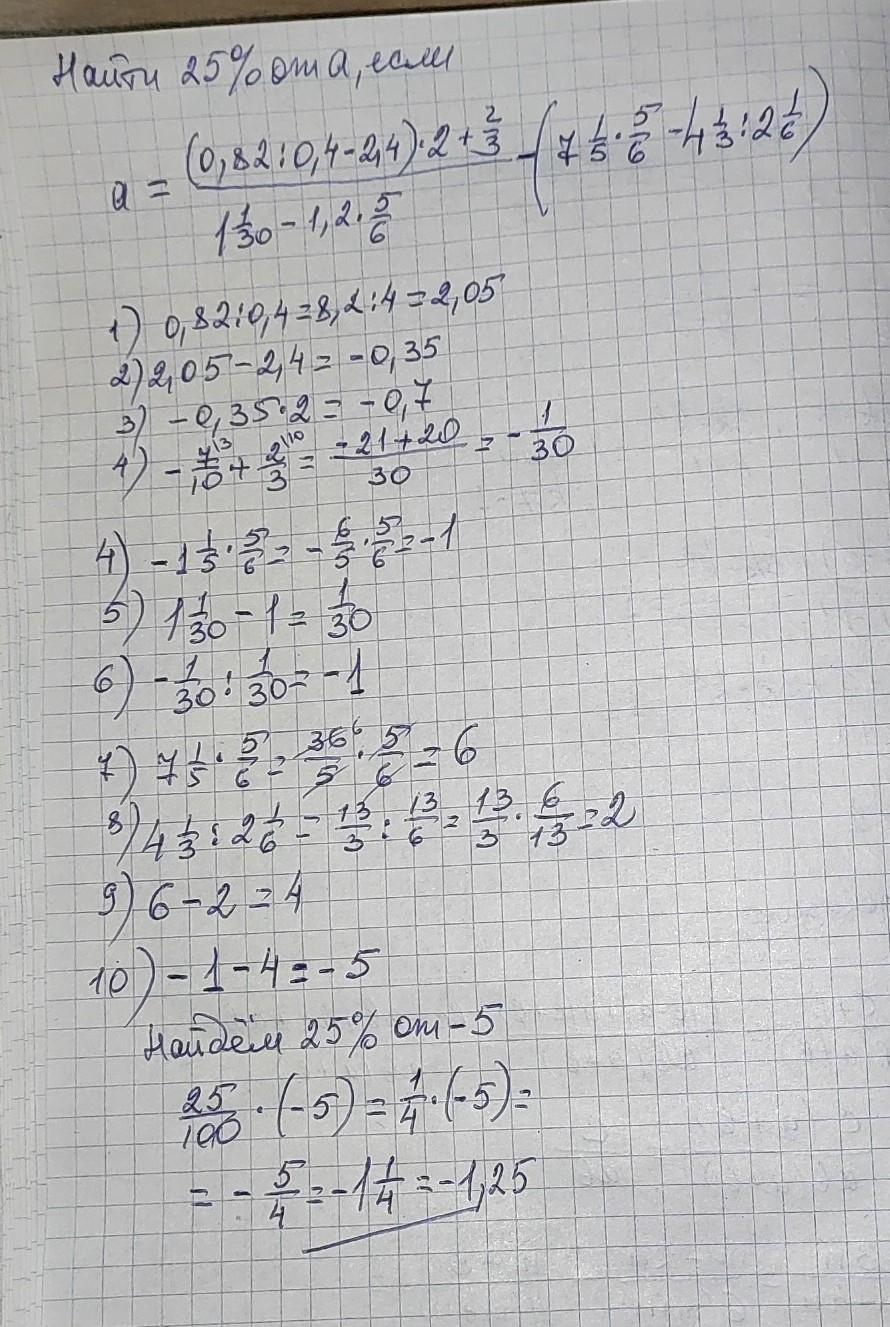 Найти 25% от a, если
a = ((0,82:0,4-2,4)·2+2/3)/(1 1/30 - 1,2·5/6) - (7 1/5·5/6 - 4 1/3:2 1/6)
1) 0,82:0,4=8,2:4=2,05
2) 2,05-2,4=-0,35
3) -0,35·2=-0,7
4) -7\3/10+2\10/3=(-21+20)/30=-1/30
4) -1 1/5·5/6=-6/5·5/6=-1
5) 1 1/30-1=1/30
6) -1/30:1/30=-1
7) 7 1/5·5/6=36 6/5·5/6=6
8) 4 1/3:2 1/6=13/3:13/6=13/3·6/13=2
9) 6-2=4
10) -1-4=-5
Найдём 25% от -5
25/100·(-5)=1/4·(-5)=
=-5/4=-1 1/4=-1,25